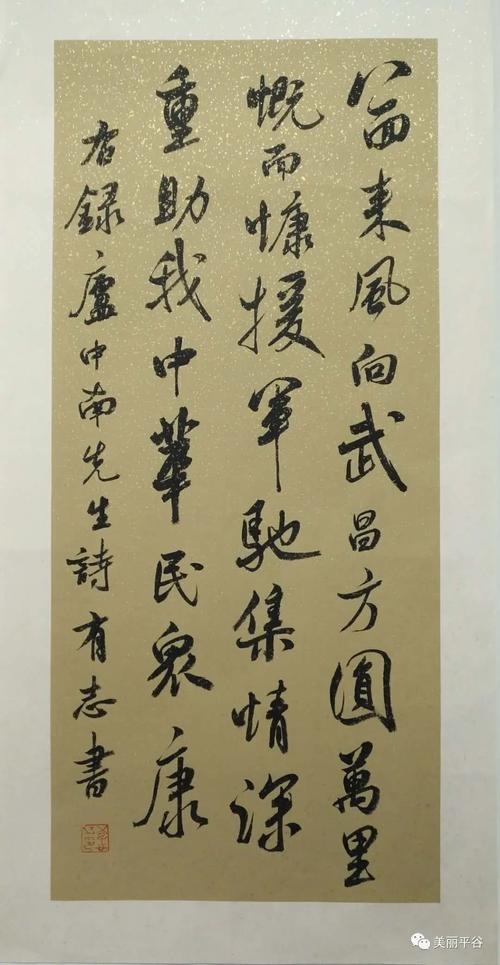 八面来風向武昌方圓萬里
慨而慷援軍馳集情深
重助我中華民眾康
右録廬中南先生詩有志書
美丽平谷